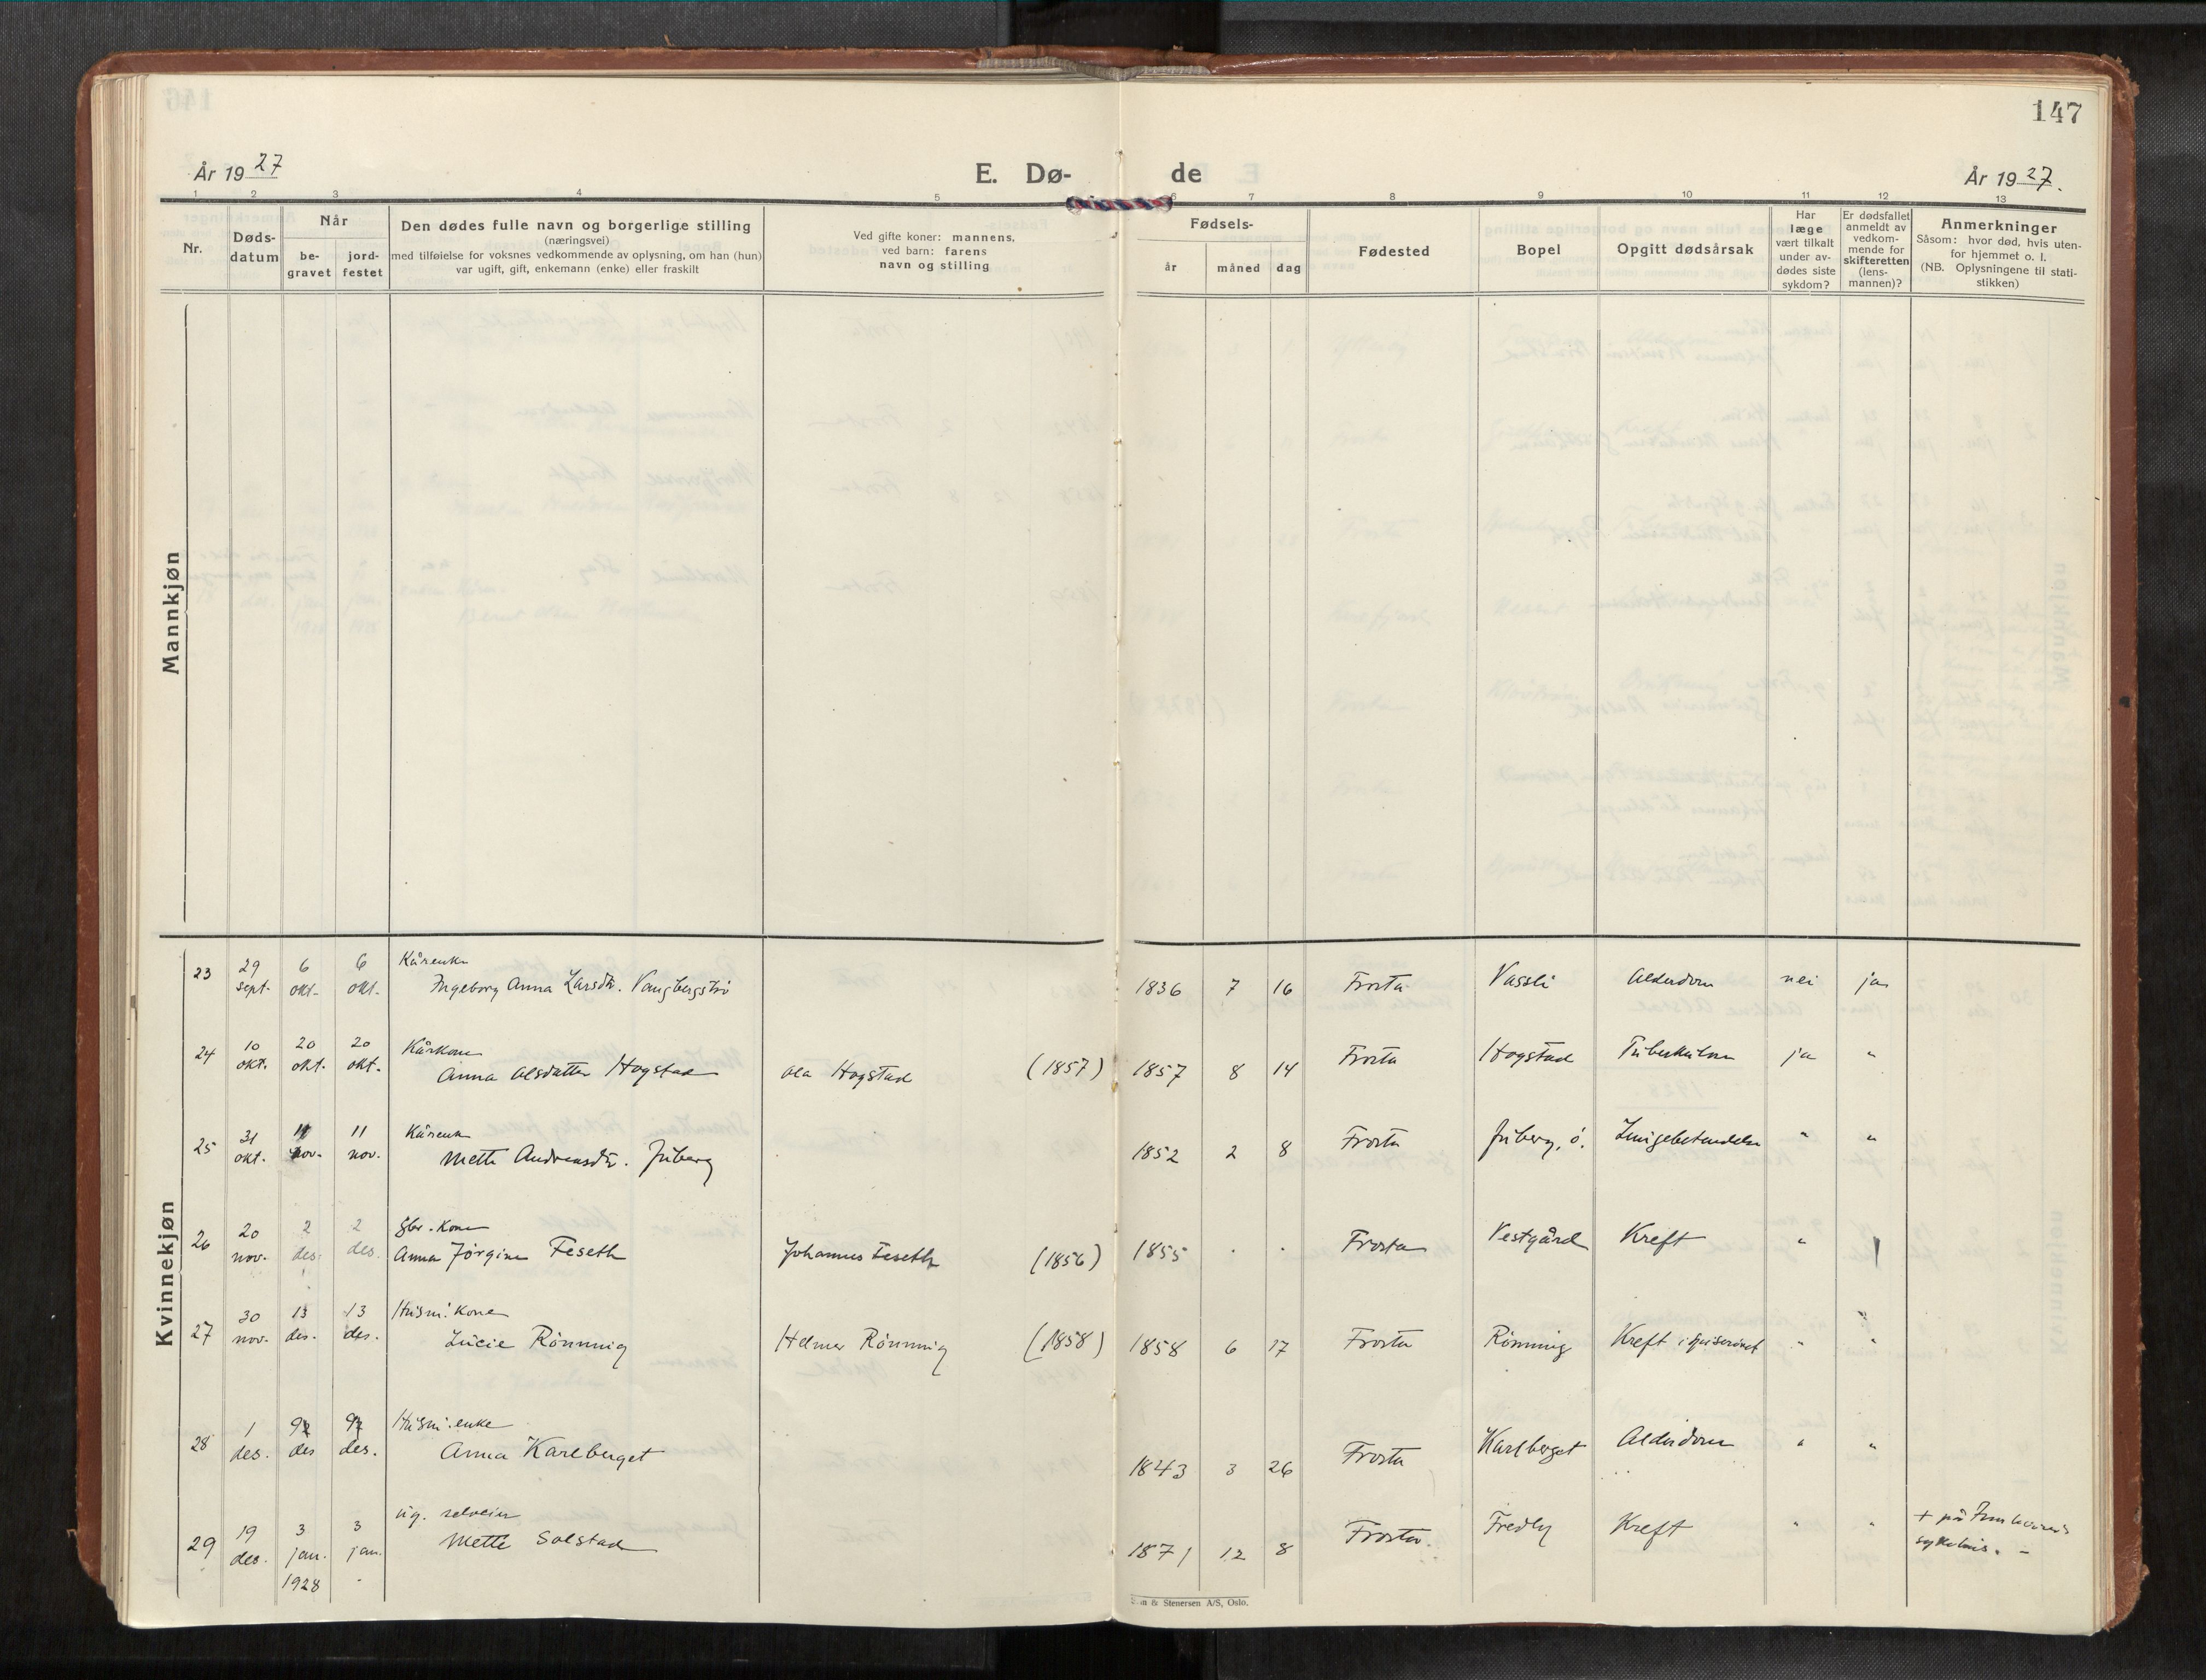 147
År 1927
E. Dø-
de
År 1927.
1 2 3 4 5 6 7 8 9 10 11 12 13
Nr.
Døds-
datum
Når
be-
gravet
jord-
festet
Den dødes fulle navn og borgerlige stilling
(næringsvei)
med tilføielse for voksnes vedkommende av oplysning, om han (hun)
var ugift, gift, enkemann (enke) eller fraskilt
Ved gifte koner: mannens,
ved barn: farens
navn og stilling
Fødsels-
år måned dag
Fødested
Bopel
Opgitt dødsårsak
Har
læge
vært tilkalt
under av-
dødes siste
sykdom?
Er dødsfallet
anmeldt av
vedkom-
mende for
skifteretten
(lens-
mannen)?
Anmerkninger
Såsom: hvor død, hvis uten-
for hjemmet o. l.
(NB. Oplysningene til stati-
stikken)
Mannkjøn
Kvinnekjøn
23 29 6 6 Kårenke
sept. okt. okt. Ingeborg Anna Larsdtr. Vangbergstrø 1836 7 16 Frosta Vassli Alderdom nei ja
24 10 20 20 Kårkone
okt. okt. okt. Anna Olsdatter Hogstad Ola Hogstad (1857) 1857 8 14 Frosta Hogstad Tuberkulose ja "
25 31 11 11 Kårenke
okt. nov. nov. Mette Andreasdtr. Juberg 1852 2 8 Frosta Juberg, ö. Lungebetendelse " "
26 20 2 2 gbr. kone
nov. des. des. Anna Jörgine Feseth Johannes Feseth (1856) 1855 . . Frosta Vestgård Kreft "
27 30 13 13 Husm. kone
nov. des. des. Lucie Rönning Helmer Rönning (1858) 1858 6 17 Frosta Rönning Kreft i spiseröret " "
28 1 9 9 Husm. enke
des. des des. Anna Karlberget 1843 3 26 Frosta Karlberget Alderdom " "
29 19 3 3 ug. selveier
des. jan. jan. Mette Solstad 1871 12 8 Frosta. Fredly Kreft " " + på Innherreds
1928 sykehus. -
& Stenersen A/S, Oslo.